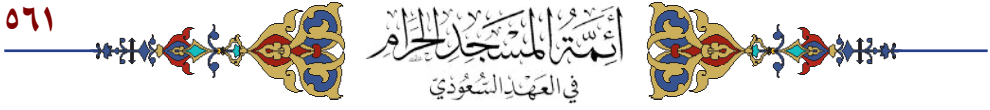 ٥٦١
أَئِمَّةُ المَسْجِدِ الحَرَامِ
فِي العَهْدِ السُّعُودِيِّ